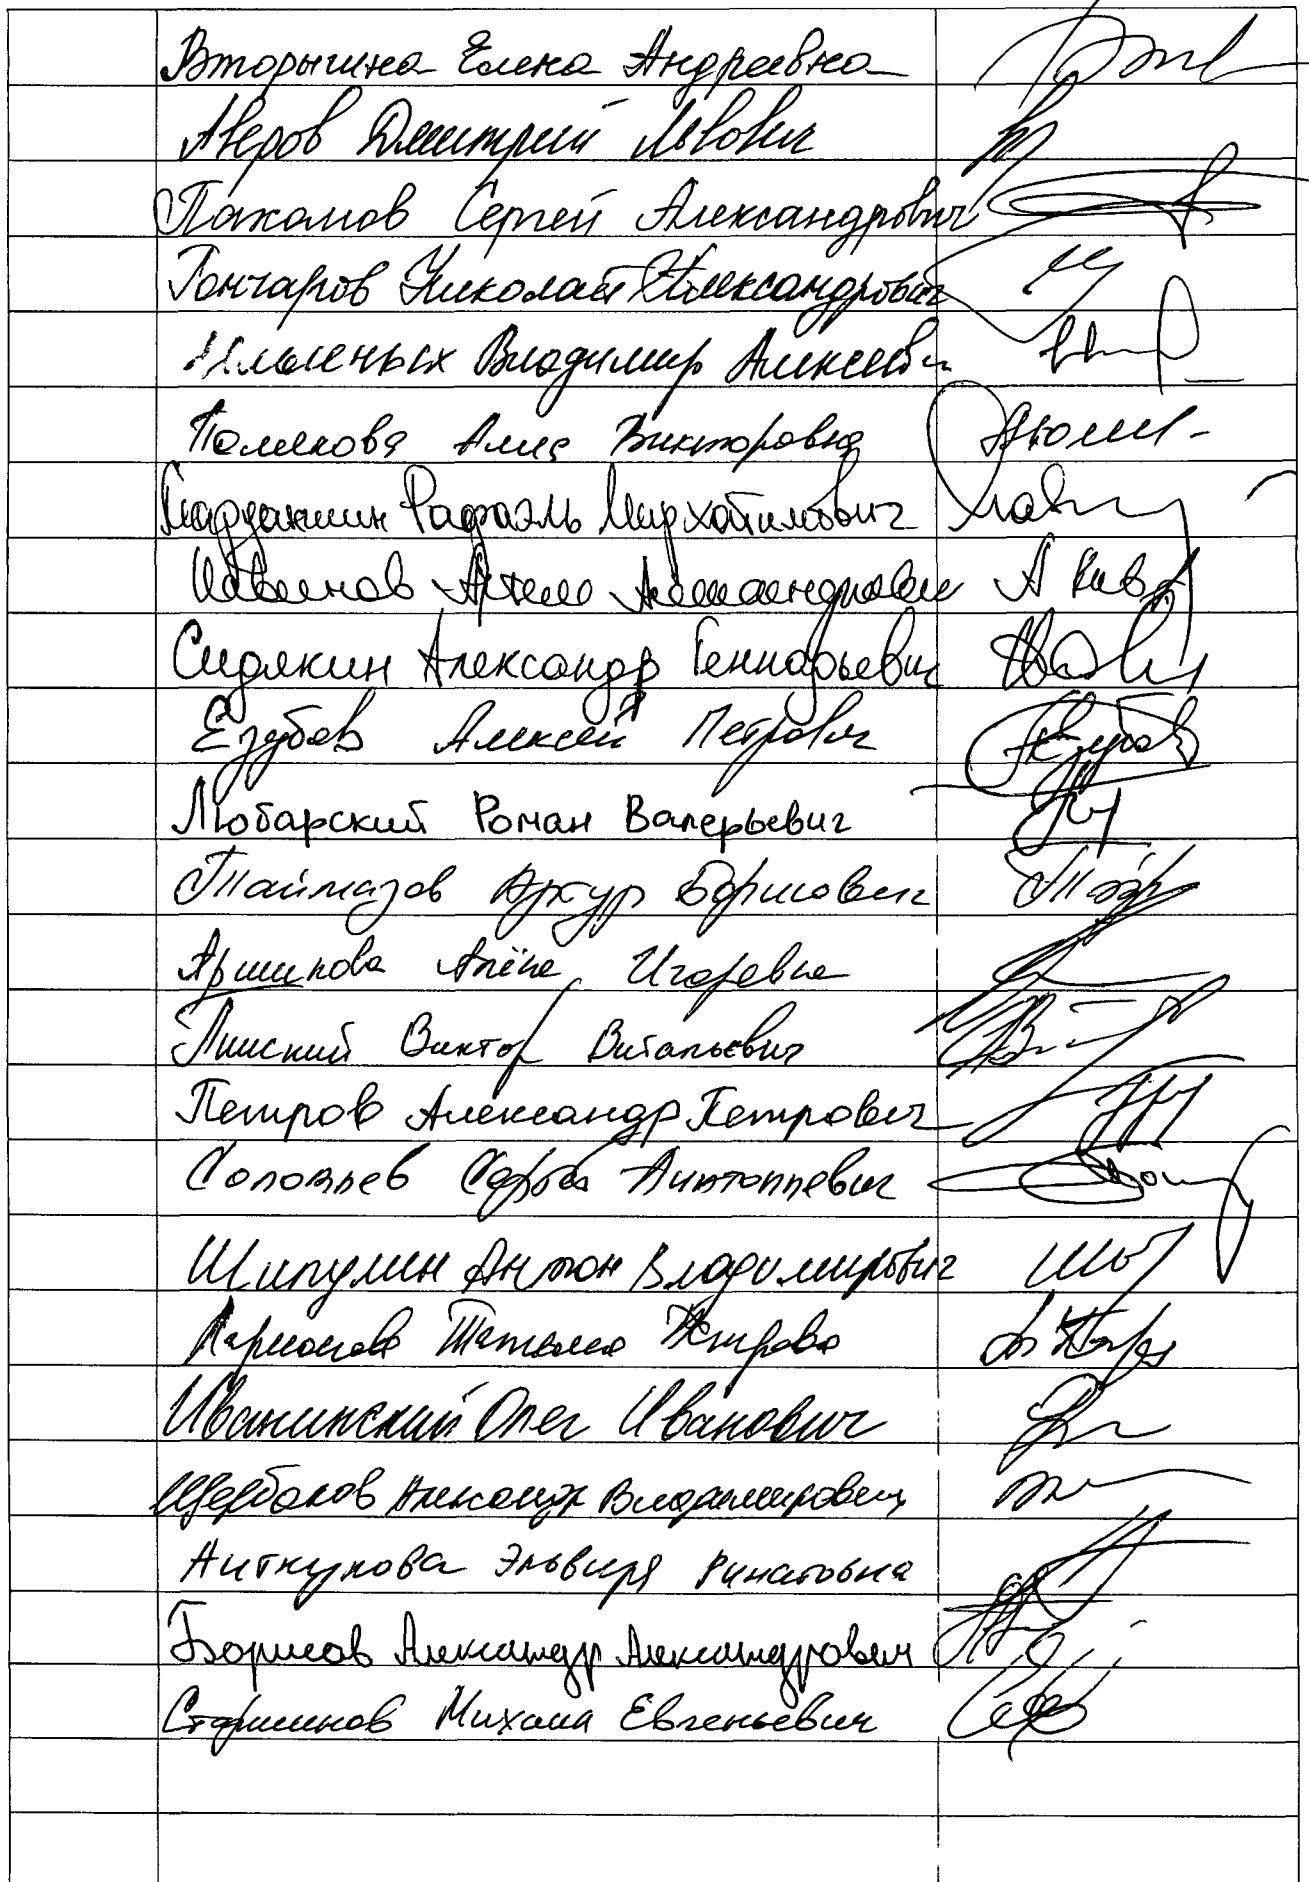 Вторыгина Елена Андреевна
Аверов Дмитрий Львович
Пахомов Сергей Александрович
Гончаров Николай Александрович
Владимир Алексеевич
Полякова Алла Викторовна
Марданшин Рафаэль Мирхатимович
Кавинов Артём Александрович
Сидякин Александр Геннадьевич
Езубов Алексей Петрович
Любарский Роман Валерьевич
Таймазов Артур Борисович
Аршинова Алёна Игоревна
Пинский Виктор Витальевич
Петров Александр Петрович
Соловьев Сергей Анатольевич
Шипулин Антон Владимирович
Ларионова Татьяна Петровна
Иванинский Олег Иванович
Щербаков Александр Владимирович
Аиткулова Эльвира Ринатовна
Борисов Александр Александрович
Старшинов Михаил Евгеньевич